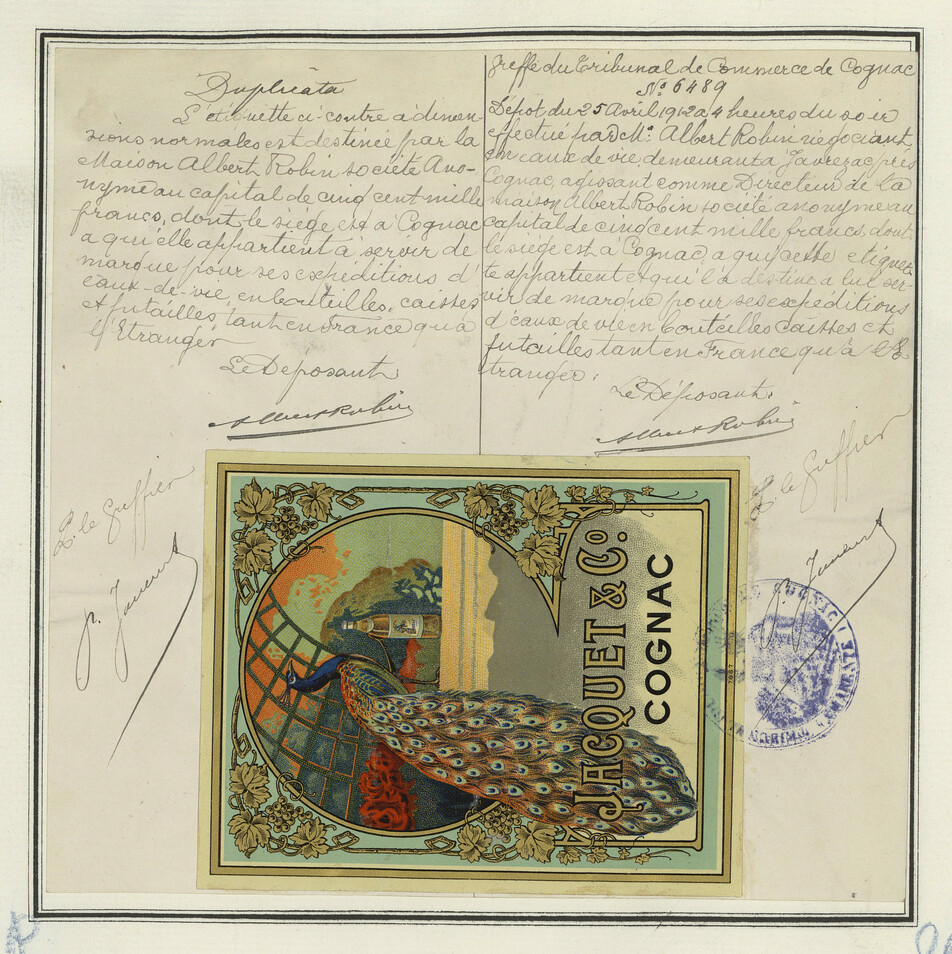 Duplicata
L'étiquette ci-contre à dimen-
sions normales est destinée par la
Maison Albert Robin société Ano-
nyme au capital de cinq cent mille
francs, dont le siége est à Cognac
a qui elle appartient à servir de
marque pour ses expéditions d'
eaux-de-vie, en bouteilles, caisses
et futailles, tant en France qu'à
l'Etranger
Le Déposant
Albert Robin
Greffe du Tribunal de Commerce de Cognac
No 6489
Dépot du 25 Avril 1912 a 4 heures du soir
effectué par Mr. Albert Robin négociant
en eaux de vie, demeurant a Javrezac près
Cognac, agissant comme Directeur de la
maison Albert Robin société anonyme au
capital de cinq cent mille francs, dont
le siége est à Cognac, a qui cette etiquet-
te appartient et qu'il a destine a lui ser-
vir de marque pour ses expeditions
d'eaux de vie en bouteilles caisses et
futailles tant en France qu'à l'E
tranger.
Le Déposant
Albert Robin
P. le Greffier
P. le Greffier
JACQUET & Co.
COGNAC
COGNAC